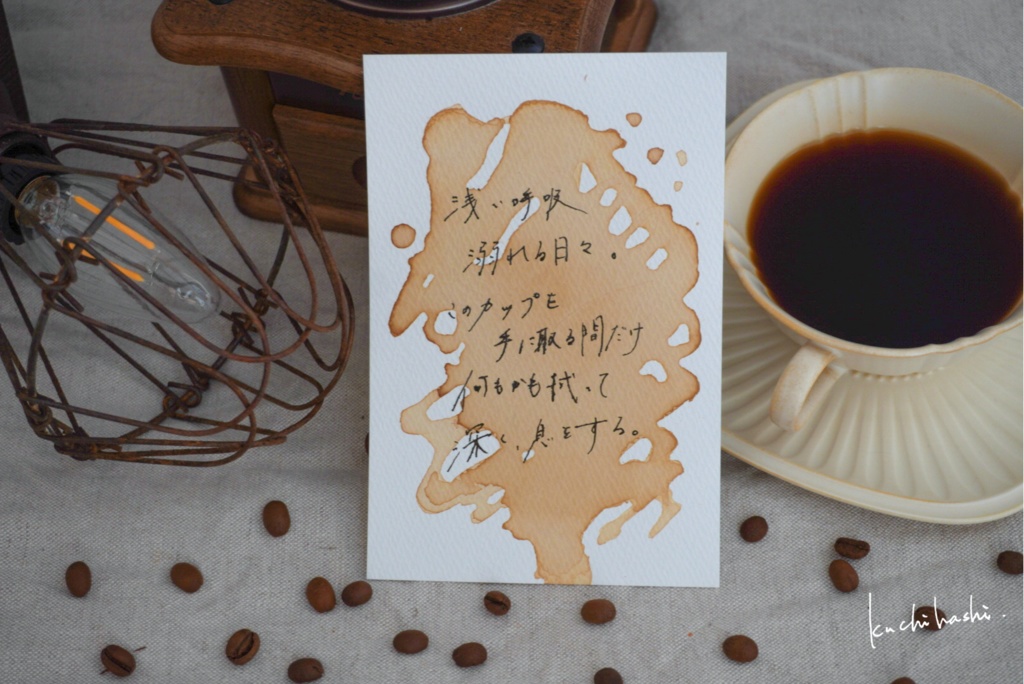 浅い呼吸
溺れる日々。
このカップを
手に取る間だけ
何もかも拭って
深く、息をする。
kuchihashi.